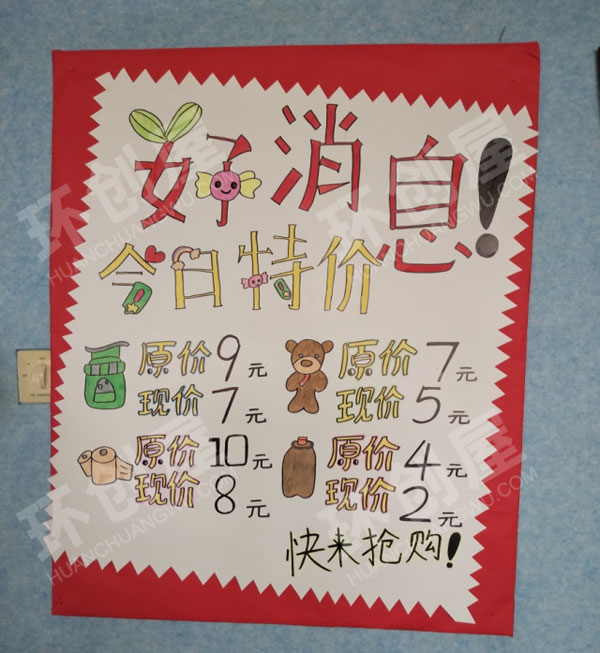 好消息!
今日特价
原价9元 原价7元
现价7元 现价5元
原价10元 原价4元
现价8元 现价2元
快来抢购!
环创屋
HUANCHUANGWU.COM
环创屋
HUANCHUANGWU.COM
环创屋
HUANCHUANGWU.COM
环创屋
HUANCHUANGWU.COM